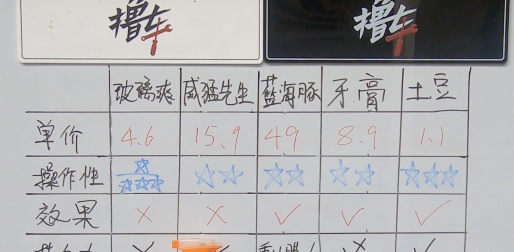 撸车 撸车
玻璃爽 威猛先生 蓝海豚 牙膏 土豆
单价 4.6 15.9 49 8.9 1.1
操作性 ☆☆☆☆ ☆☆ ☆☆ ☆☆ ☆☆☆
效果 × × ✓ ✓ ✓